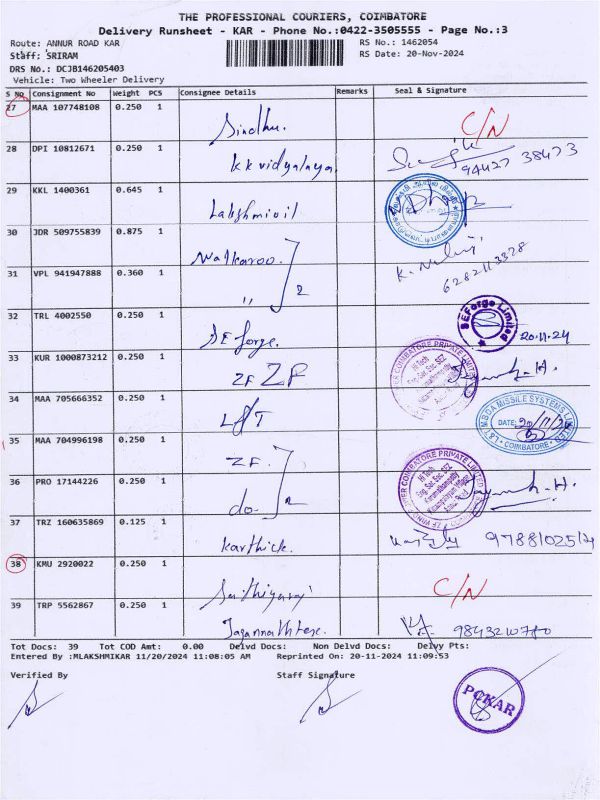 THE PROFESSIONAL COURIERS, COIMBATORE
Delivery Runsheet - KAR - Phone No.:0422-3505555 - Page No.:3
Route: ANNUR ROAD KAR
RS No.: 1462054
Staff: SRIRAM
RS Date: 20-Nov-2024
DRS No.: DCJB146205403
Vehicle: Two Wheeler Delivery
S No Consignment No Weight PCS Consignee Details Remarks Seal & Signature
27 MAA 107748108 0.250 1
Sindhu. C/N
28 DPI 10812671 0.250 1
kk vidyalaya. 94427 38473
29 KKL 1400361 0.645 1
Lakshmi oil
30 JDR 509755839 0.875 1
Walkaroo.
31 VPL 941947888 0.360 1
" 2 6282113328
32 TRL 4002550 0.250 1
SE forge. SEForge Limited 20.11.24
33 KUR 1000873212 0.250 1
ZF ZF
34 MAA 705666352 0.250 1
L&T L&T MBDA MISSILE SYSTEMS LIMITED DATE: 20/11/24 COIMBATORE
35 MAA 704996198 0.250 1
ZF.
36 PRO 17144226 0.250 1
do. 2
37 TRZ 160635869 0.125 1
Karthick.
38 KMU 2920022 0.250 1
C/N
39 TRP 5562867 0.250 1
9843210780
Tot Docs: 39 Tot COD Amt: 0.00 Delvd Docs: Non Delvd Docs: Delvy Pts:
Entered By :MLAKSHMIKAR 11/20/2024 11:08:05 AM Reprinted On: 20-11-2024 11:09:53
Verified By Staff Signature
PCKAR